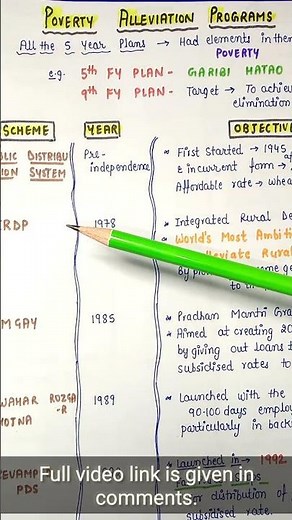 POVERTY ALLEVIATION PROGRAMS
All the 5 Year Plans → Had elements in them
POVERTY
e.g. 5th FY PLAN - GARIBI HATAO
9th FY PLAN - Target → To achie
elimination
SCHEME YEAR OBJECTIVE
BLIC DISTRIBU
ION SYSTEM
Pre-
independence
* First Started → 1945
& in current form →
Affordable rate → whea
IRDP 1978 * Integrated Rural De
* World's Most Ambiti
lleviate Rura
By
to
MGAY 1985 * Pradhan Mantri Gra
* Aimed at creating 20
by giving out loans t
subsidised rates to
WAHAR ROZGA
-R
YOJNA
1989 * Launched with the
90-100 days employ
particularly in back
EVAMP
PDS
* Launched in → 1992
for distribution of
subsidised rate.
Full video link is given in
comments.